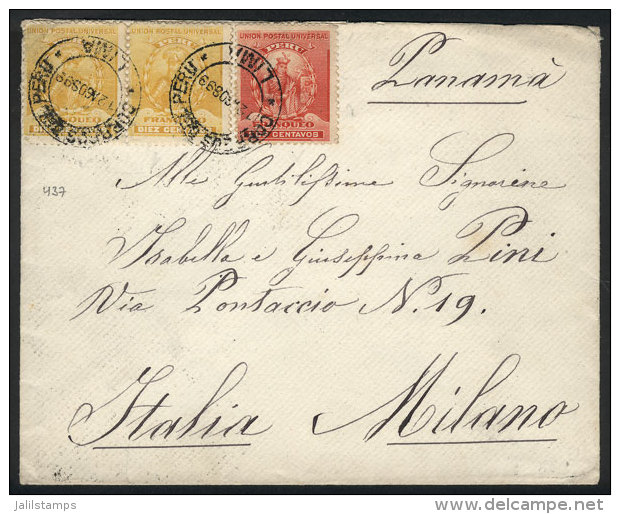 UNION POSTAL UNIVERSAL
UNION POSTAL UNIVERSAL
PERU
FRANQUEO
DIEZ CENTAVOS
UNION POSTAL UNIVERSAL
PERU
FRANQUEO
CENTAVOS
LIMA
PERU
LIMA
PERU
Panamà
437
Alle Gentilissime Signorine
Isabella e Giuseppina Pini
Via Pontaccio N. 19.
Italia Milano
jalilstamps
delcampe.net